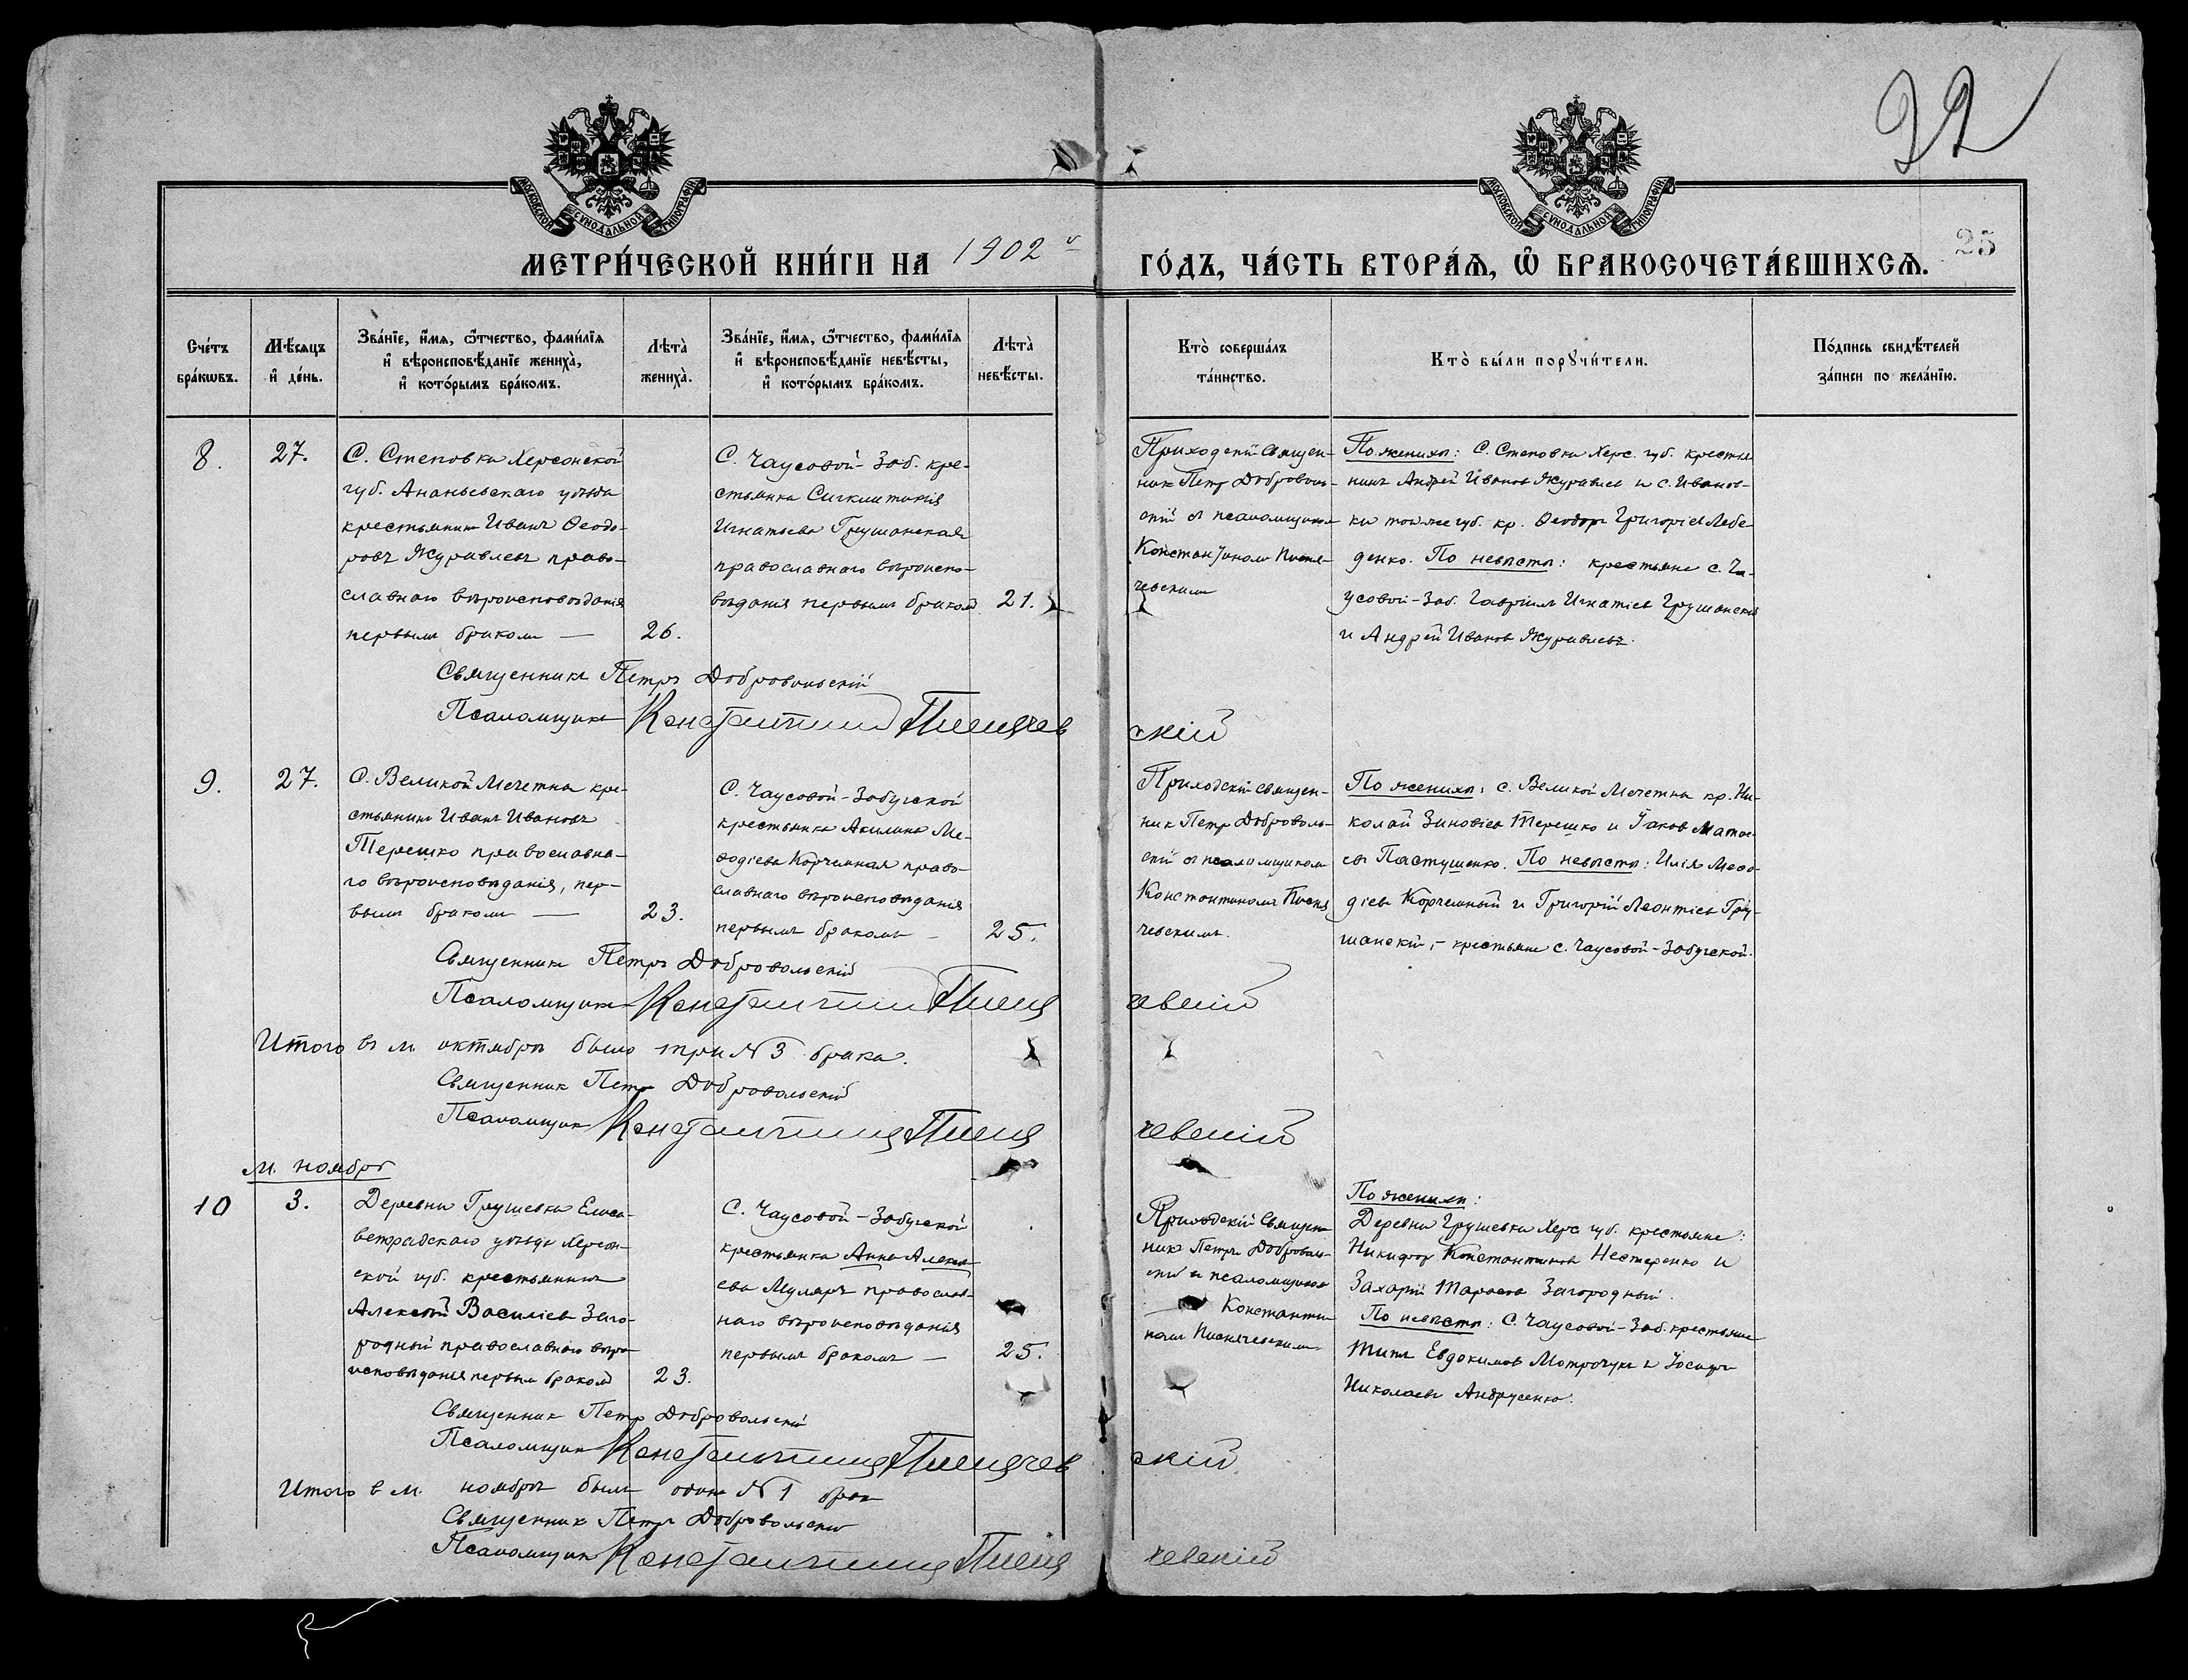 22
МОСКОВСКОЙ СѴНОДАЛЬНОЙ ТИПОГРАФІИ
МОСКОВСКОЙ СѴНОДАЛЬНОЙ ТИПОГРАФІИ
МЕТРИ́ЧЕСКОЙ КНИ́ГИ НА 1902й ГО́ДЪ, ЧА́СТЬ ВТОРА́Ѧ, Ѽ БРАКОСОЧЕТА́ВШИХСѦ. 25
Сче́тъ бра́кѡвъ.
Мѣ́сяцъ и҆ де́нь.
Зва́нїе, и҆́мѧ, ѻ҆́тчество, фами́лїѧ
и҆ вѣроисповѣ́данїе жениха̀,
и҆ кото́рымъ бра́комъ.
Лѣта̀ жениха̀.
Зва́нїе, и҆́мѧ, ѻ҆́тчество, фами́лїѧ
и҆ вѣроисповѣ́данїе невѣ́сты,
и҆ кото́рымъ бра́комъ.
Лѣта̀ невѣ́сты.
Кто̀ соверша́лъ
та́инство.
Кто̀ бы́ли порꙋчи́тели.
По́дпись свидѣ́телей
за́писи по жела́нїю.
8.
27.
С. Степовки Херсонской
губ. Ананьевскаго уѣзда
крестьянинъ Иванъ Ѳеодо-
ровъ Журавлевъ право-
славнаго вѣроисповѣданія
первымъ бракомъ —
26.
С. Чаусовой-Заб. кре-
стьянка
Игнатьева Грушанская
православнаго вѣроиспо-
вѣданія первымъ бракомъ
21.
Приходскій Священ-
никъ Петръ Доброволь-
скій съ псаломщикомъ
Константиномъ Пиеня-
чевскимъ
По женихѣ: С. Степовки Херс. губ. крестья
нинъ Андрей Ивановъ Журавлевъ и с. Иванов-
ки той же губ. кр. Ѳеодоръ Григоріевъ Лебе-
денко. По невѣстѣ: крестьяне с. Ча-
усовой-Заб. Гавріилъ Игнатіевъ Грушанскій
и Андрей Ивановъ Журавлевъ.
Священникъ Петръ Добровольскій
Псаломщикъ Константинъ Пиенячевскій
9.
27.
С. Великой Мечетни кре-
стьянинъ Иванъ Ивановъ
Терешко православна-
го вѣроисповѣданія, пер-
вымъ бракомъ —
23.
С. Чаусовой-Забугской
крестьянка Акилина Ме-
ѳодіева Корчемная право-
славнаго вѣроисповѣданія
первымъ бракомъ —
25.
Приходскій священ-
никъ Петръ Доброволь-
скій съ псаломщикомъ
Константиномъ Пиеня
чевскимъ.
По женихѣ: с. Великой Мечетни кр. Ни-
колай Зиновіевъ Терешко и Іаковъ Матѳе-
евъ Пастушенко. По невѣстѣ: Илія Меѳо-
діевъ Корчемный и Григорій Леонтіевъ Гру-
шанскій, – крестьяне с. Чаусовой-Забугской.
Священникъ Петръ Добровольскій
Псаломщикъ Константинъ Пиенячевскій
Итого въ м. октябрѣ было три № 3 брака.
Священникъ Петръ Добровольскій
Псаломщикъ Константинъ Пиенячевскій
м. ноябрь
10
3.
Деревни Грушевки Елиса-
ветградскаго уѣзда Херсон-
ской губ. крестьянинъ
Алексѣй Василіевъ Заго-
родный православнаго вѣро-
исповѣданія первымъ бракомъ
23.
С. Чаусовой-Забугской
крестьянка Анна Алексѣ-
ева Муляръ православ-
наго вѣроисповѣданія
первымъ бракомъ —
25.
Приходскій Священ
никъ Петръ Доброволь-
скій и псаломщикъ
Константи
номъ Пиенячевскимъ
По женихѣ:
Деревни Грушевки Херс губ. крестьяне:
Никифоръ Константиновъ Нестеренко и
Захарій Тарасовъ Загородный.
По невѣстѣ: С. Чаусовой-Заб. крестьяне
Титъ Евдокимовъ Мотрочукъ и Іосифъ
Николаевъ Андрусенко.
Священникъ Петръ Добровольскій
Псаломщикъ Константинъ Пиенячевскій
Итого в м. ноябрѣ былъ одинъ № 1 бракъ
Священникъ Петръ Добровольскій
Псаломщикъ Константинъ Пиенячевскій